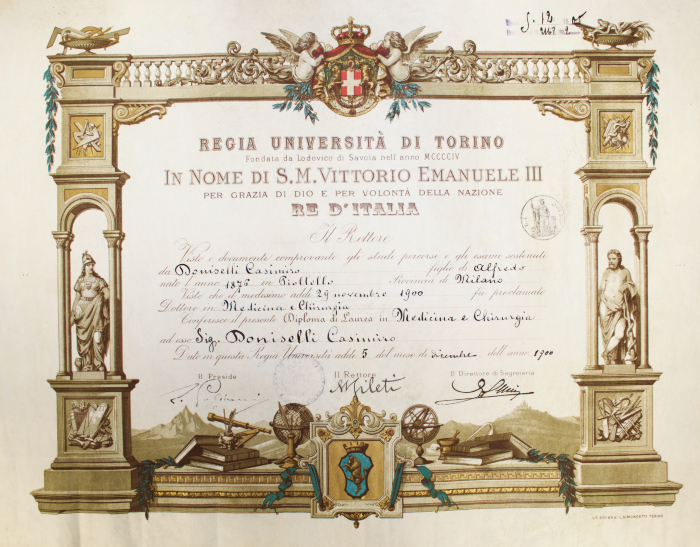 REGIA UNIVERSITÀ DI TORINO
Fondata da Lodovico di Savoia nell'anno MCCCCIV
IN NOME DI S. M. VITTORIO EMANUELE III
PER GRAZIA DI DIO E PER VOLONTÀ DELLA NAZIONE
RE D'ITALIA
Il Rettore
Visto i documenti comprovanti gli studi percorsi e gli esami sostenuti
da Doniselli Casimiro figlio di Alfredo
nato l'anno 1876 in Pioltello Provincia di Milano
Visto che il medesimo addì 29 novembre 1900 fu proclamato
Dottore in Medicina e Chirurgia
Conferisce il presente Diploma di Laurea in Medicina e Chirurgia
ad esso Sig. Doniselli Casimiro
Dato in questa Regia Università addì 5 del mese di dicembre dell'anno 1900
Il Preside Il Rettore Il Direttore di Segreteria